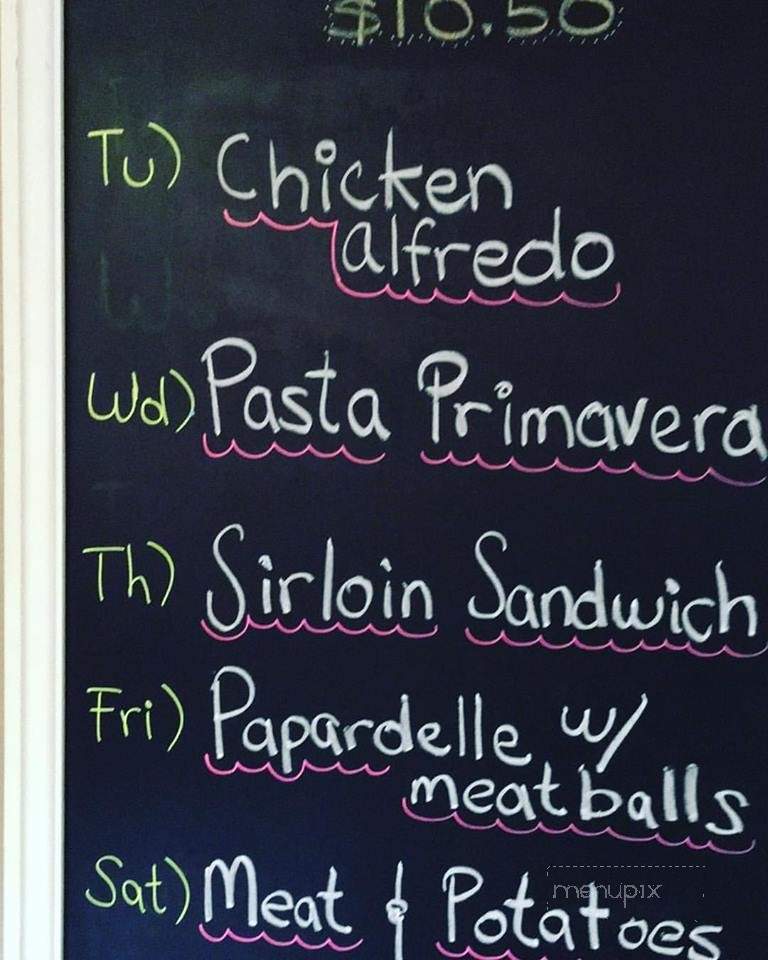 $10.50
Tu) Chicken
alfredo
Wd) Pasta Primavera
Th) Sirloin Sandwich
Fri) Papardelle w/
meatballs
Sat) Meat & Potatoes
menupix